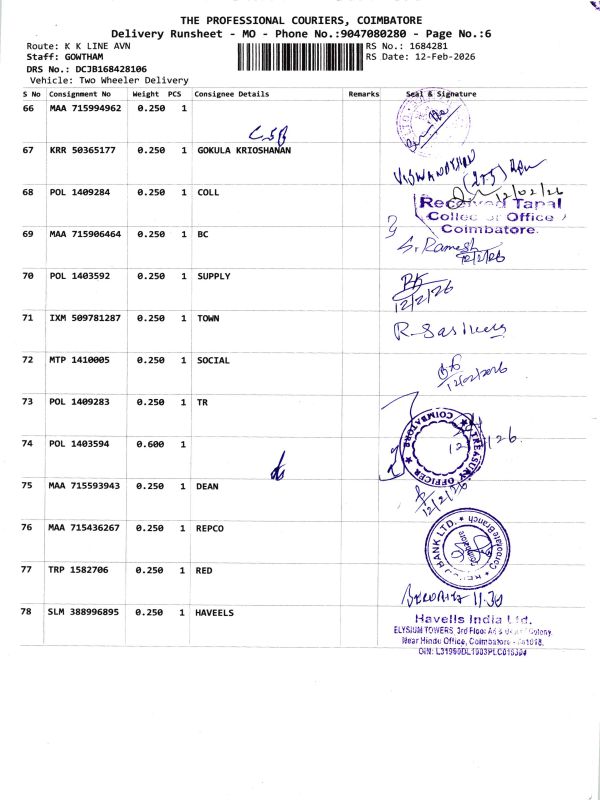 THE PROFESSIONAL COURIERS, COIMBATORE
Delivery Runsheet - MO - Phone No.:9047080280 - Page No.:6
Route: K K LINE AVN
RS No.: 1684281
Staff: GOWTHAM
RS Date: 12-Feb-2026
DRS No.: DCJB168428106
Vehicle: Two Wheeler Delivery
S No Consignment No Weight PCS Consignee Details Remarks Seal & Signature
66 MAA 715994962 0.250 1
67 KRR 50365177 0.250 1 GOKULA KRIOSHANAN
68 POL 1409284 0.250 1 COLL
12/02/26
Received Tapal
Collector Office
Coimbatore.
69 MAA 715906464 0.250 1 BC
S. Ramesh
12/2/26
70 POL 1403592 0.250 1 SUPPLY
12/2/26
71 IXM 509781287 0.250 1 TOWN
72 MTP 1410005 0.250 1 SOCIAL
12/02/2026
73 POL 1409283 0.250 1 TR
TREASURY OFFICER
COIMBATORE
74 POL 1403594 0.600 1
75 MAA 715593943 0.250 1 DEAN
12/2/26
76 MAA 715436267 0.250 1 REPCO
BANK LTD.
Corporate Branch
77 TRP 1582706 0.250 1 RED
11.30
78 SLM 388996895 0.250 1 HAVEELS
Havells India Ltd.
ELYSIUM TOWERS, 3rd Floor
Near Hindu Office, Coimbatore